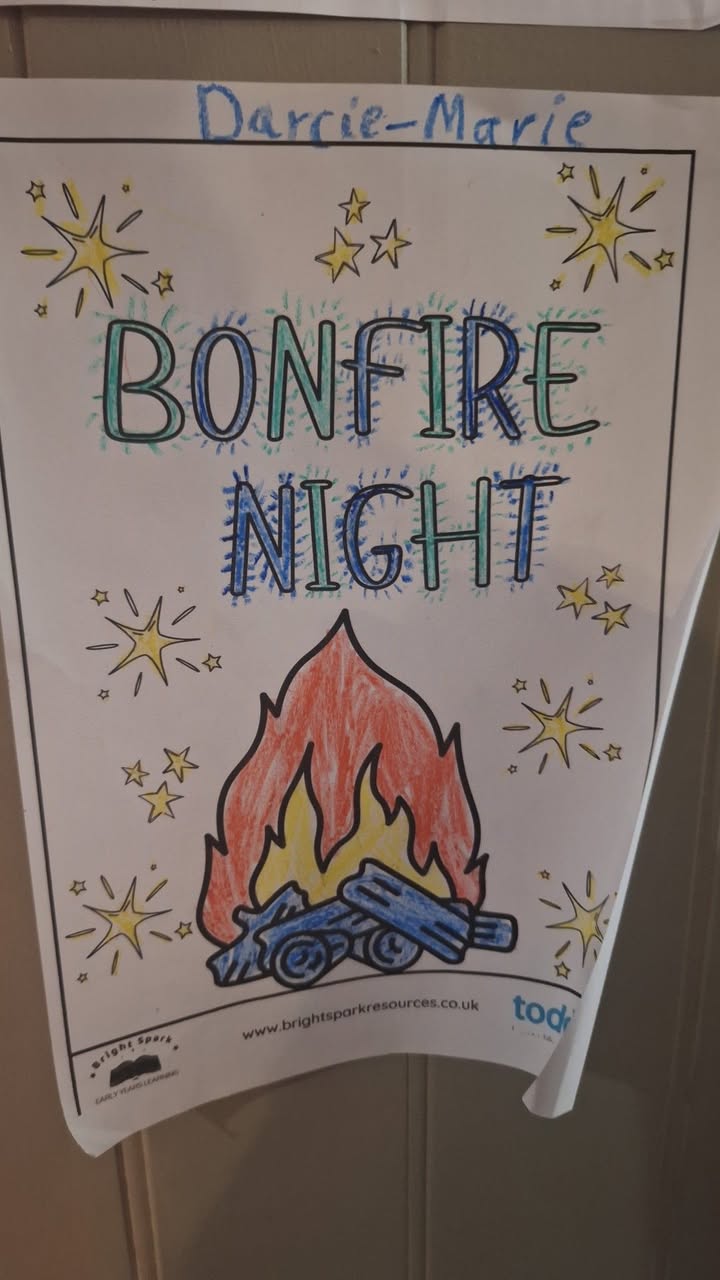 Darcie-Marie
BONFIRE
NIGHT
www.brightsparkresources.co.uk
Bright Spark
EARLY YEARS LEARNING